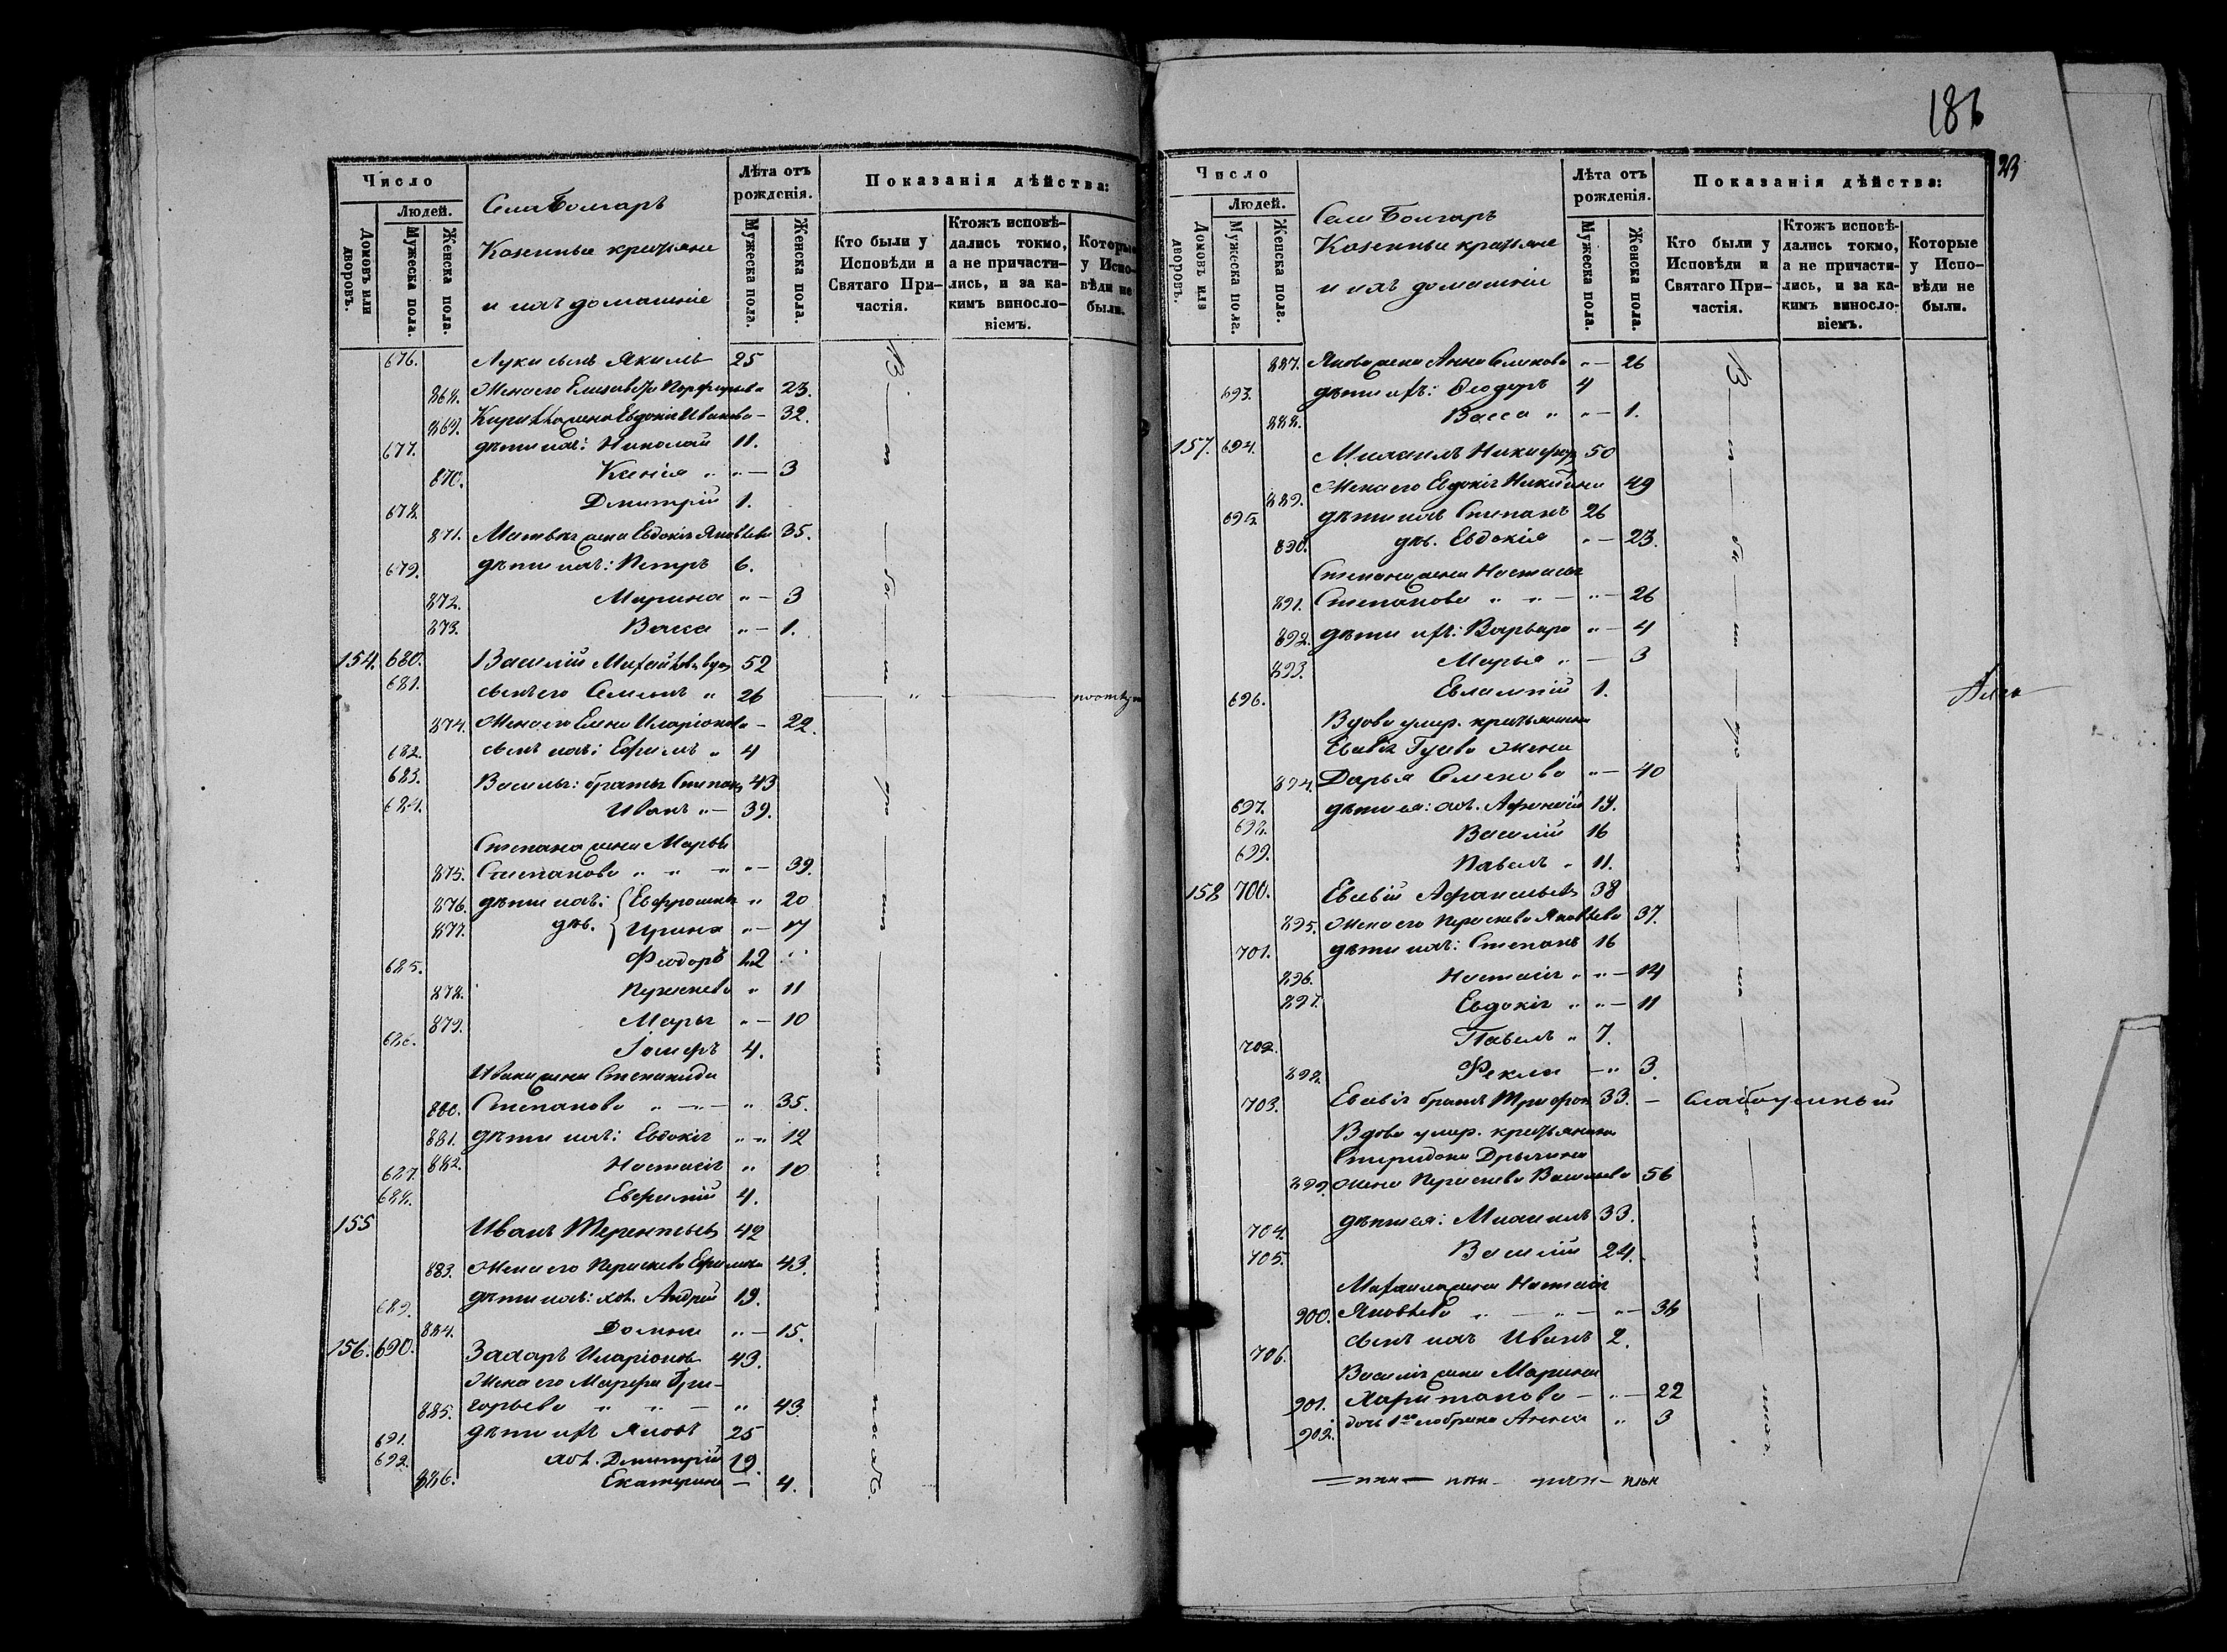 186
23
Число
Людей.
Домовъ или дворовъ.
Мужеска пола.
Женска пола.
Села Болгаръ
Казенные крестьяне
и ихъ домашніе
Лѣта отъ рожденія.
Мужеска пола.
Женска пола.
Показанія дѣйства:
Кто были у Исповѣди и Святаго Причастія.
Ктожъ исповѣдались токмо, а не причастились, и за какимъ винословіемъ.
Которые у Исповѣди не были.
676. Луки сынъ Якимъ 25
868. Жена его Елисавета Порфирьева 23.
869. жена Евдокія Иванова — 32.
677. дѣти ихъ: Николай 11.
870. Ксенія " " — 3
678. Дмитрій 1.
871. Матвѣя жена Евдокія Яковлева 35.
679. дѣти ихъ: Петръ 6.
872. Марина " — 3
873. Васса " — 1.
154. 680. Василій 52
681. сынъ его Семенъ " 26
874. Жена его Елена Иларіонова — 29.
682. сынъ ихъ: Ефимъ " 4
683. Василья: братья Степанъ 43
684. Иванъ " — 39.
Степана жена Марья
875. Степанова " " " " — 39.
876. дѣти ихъ: Евфросинья " 20
877. дѣв. Ирина " — 17
685. Феодоръ 12
878. Параскева " 11
879. Марья " — 10
686. Іосифъ 4.
Ивана жена Степанида
880. Степанова " — " — " 35.
881. дѣти ихъ: Евдокія " " 12
882. Настасія " 10
687.
688. Евфимій 4.
155 Иванъ Терентьевъ 42
883. Жена его Параскева Ефимова 43.
689. дѣти ихъ: хол. Андрей 19.
884. Домна " — 15.
156. 690. Захаръ Иларіоновъ 43.
Жена его Марфа Гри-
885. горьева " " — " 43.
691. дѣти ихъ Яковъ 25
692. хол. Дмитрій 19.
886. Екатерина — 4.
Число
Людей.
Домовъ или дворовъ.
Мужеска пола.
Женска пола.
Села Болгаръ
Казенные крестьяне
и ихъ домашніе
Лѣта отъ рожденія.
Мужеска пола.
Женска пола.
Показанія дѣйства:
Кто были у Исповѣди и Святаго Причастія.
Ктожъ исповѣдались токмо, а не причастились, и за какимъ винословіемъ.
Которые у Исповѣди не были.
887. Якова жена Анна Семенова " — 26
693. дѣти ихъ: Ѳеодоръ 4
888. Васса " " — 1.
157. 694. Михаилъ Никифор 50
889. Жена его Евдокія Никитина 49
695. дѣти ихъ Степанъ 26
890. дѣв. Евдокія " — 23.
Степана жена Настасья
891. Степанова " " — " — 26
892. дѣти ихъ: Варвара " — 4
893. Марья " — 3
696. Евлампій 1.
Вдова умер. крестьянина
Евсевія Гусева жена
894. Дарья Семенова " — 40
697. дѣти ея: хол. Афанасій 19.
698. Василій 16
699. Павелъ " 11.
158 700. Евсевій Афанасьевъ 38
895. Жена его Параскева Яковлева 37.
701. дѣти ихъ: Степанъ 16
896. Настасія " " — 14
897. Евдокія " " — 11
702. Павелъ " 7.
898. Фекла — " 3.
703. Евсевія братъ Трифонъ 33. — слабоумный
Вдова умер. крестьянина
Спиридона
899. жена Параскева Васильева 56
704. дѣти ея: Михаилъ 33.
705. Василій 24.
Михаила жена Настасія
900. Яковлева " — " — " — 36
706. сынъ ихъ Иванъ 2.
Василія жена Марина
901. Харитонова — " — 22
902. дочь 1го брака Анна " 3